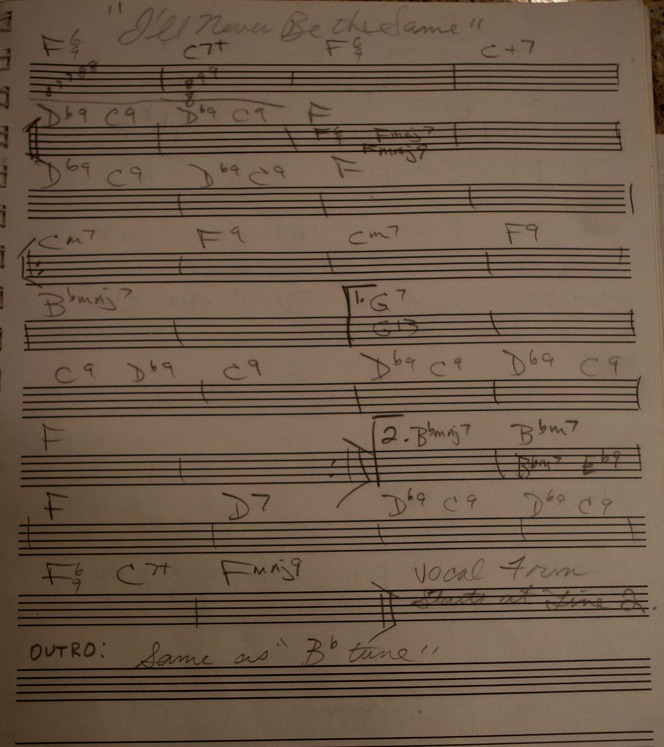 "I'll Never Be the Same"
F6/9 C7+ F6/9 C+7
Db9 C9 Db9 C9 F
F6/9 Fmaj7
Fmaj9
Db9 C9 Db9 C9 F
Cm7 F9 Cm7 F9
Bbmaj7 1. G7
G13
C9 Db9 C9 Db9 C9 Db9 C9
F 2. Bbmaj7 Bbm7
Bbm7 Eb9
F D7 Db9 C9 Db9 C9
F6/9 C7+ Fmaj9 Vocal Form
Starts at Line 2.
OUTRO: Same as "Bb tune"